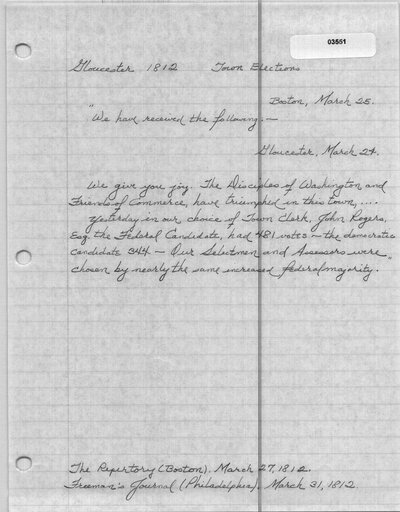 03551
Gloucester 1812 Town Elections
Boston, March 25.
"We have received the following:—
Gloucester, March 24.
We give you joy. The Disciples of Washington and
Friends of Commerce, have triumphed in this town, ....
Yesterday in our choice of Town Clerk, John Rogers,
Esq. the Federal Candidate, had 481 votes — the democratic
candidate 344 — Our Selectmen and Assessors were
chosen by nearly the same increased federal majority."
The Repertory (Boston). March 27, 1812.
Freeman's Journal (Philadelphia). March 31, 1812.